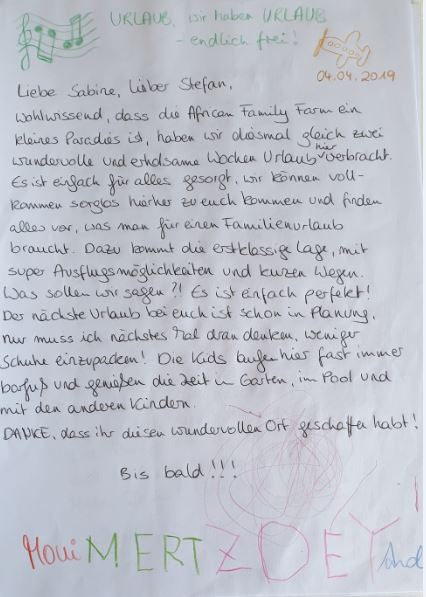 URLAUB, wir haben URLAUB
- endlich frei!
04.04.2019
Liebe Sabine, Lieber Stefan,
wohlwissend, dass die African Family Farm ein
kleines Paradies ist, haben wir diesmal gleich zwei
wundervolle und erholsame Wochen Urlaub hier verbracht.
Es ist einfach für alles gesorgt, wir können voll-
kommen sorglos hierher zu euch kommen und finden
alles vor, was man für einen Familienurlaub
braucht. Dazu kommt die erstklassige Lage, mit
super Ausflugsmöglichkeiten und kurzen Wegen.
Was sollen wir sagen?! Es ist einfach perfekt!
Der nächste Urlaub bei euch ist schon in Planung,
nur muss ich nächstes Mal dran denken, weniger
Schuhe einzupacken! Die Kids laufen hier fast immer
barfuß und genießen die Zeit im Garten, im Pool und
mit den anderen Kindern.
DANKE, dass ihr diesen wundervollen Ort geschaffen habt!
Bis bald!!!
MERT ZOEY